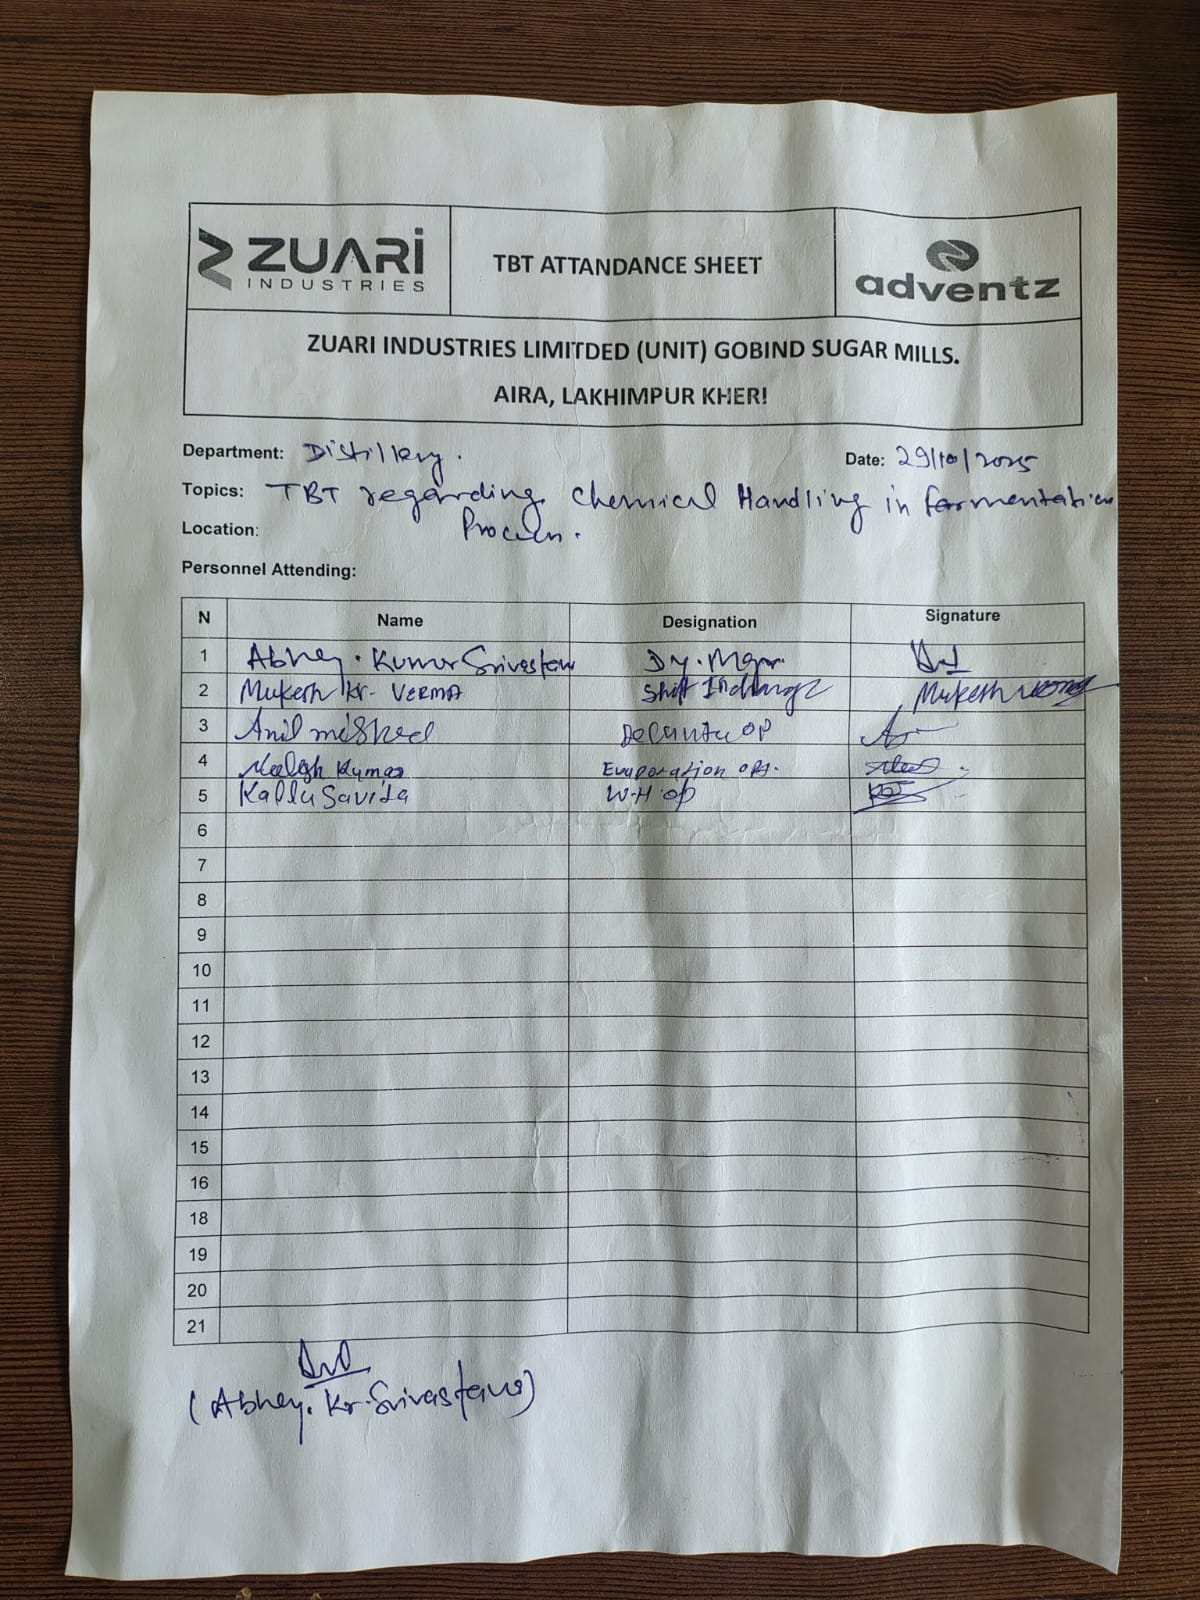 ZUARI
INDUSTRIES
TBT ATTANDANCE SHEET
adventz
ZUARI INDUSTRIES LIMITDED (UNIT) GOBIND SUGAR MILLS.
AIRA, LAKHIMPUR KHERI
Department: Distillery.
Date: 29/10/2025
Topics: TBT regarding Chemical Handling in fermentation
Location:
Personnel Attending:
N Name Designation Signature
1 Abhay. Kumar Srivastav Dy. Mgr.
2 Mukesh Kr. VERMA Shift Incharge Mukesh verma
3 Anil OP
4 Kumar Evaporation
5 Kallu Savita W.H. OP
6
7
8
9
10
11
12
13
14
15
16
18
19
20
21
(Abhay. Kr. Srivastava)